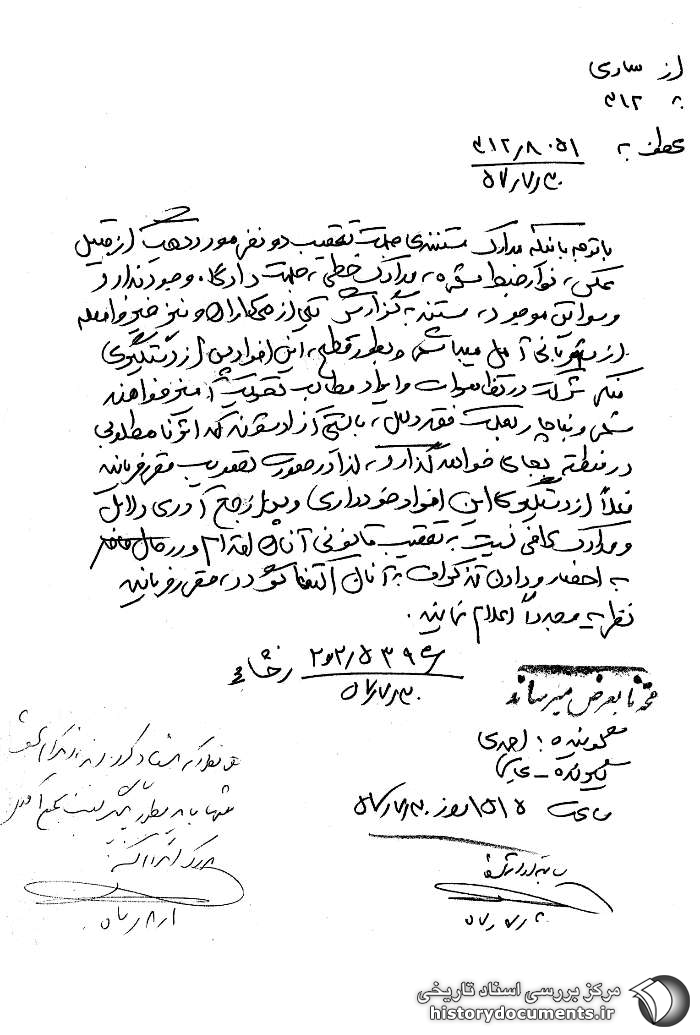 از ساری
به ۳۱۲
عطف به ۳۱۲/۸۰۵۱
۵۷/۷/۳۰
با توجه باینکه مدارک مستندی جهت تعقیب دو نفر مورد بحث از قبیل
عکس، نوار ضبط شده، مدارک خطی، جهت دادگاه وجود ندارد و
و سوابق موجود، مستند به گزارش یکی از همکاران و نیز خبر واصله
از شهربانی آمل میباشد و بطور قطع، این افراد پس از دستگیری
منکر شرکت در تظاهرات و ایراد مطالب تحریک آمیز خواهند
شد و بناچار بعلت فقد دلیل، بایستی آزاد شوند که اثر نامطلوبی
در منطقه بجای خواهد گذارد، لذا در صورت تصویب مقرر فرمایند
فعلاً از دستگیری این افراد خودداری و پس از جمع آوری دلایل
و مدارک کافی نسبت به تعقیب قانونی آنان اقدام و در حال حاضر
به احضار و دادن تذکرات به آنان اکتفا گردد، مقرر فرمایند
نظریه مجدداً اعلام نمایند.
۲۰۲/۵۳۹۶
۵۷/۷/۳۰
محترماً بعرض میرساند
گوینده: احمدی
گیرنده -
ساعت ۱۵/۱۵ روز ۵۷/۷/۳۰
۵۷/۸/۱
مرکز بررسی اسناد تاریخی
historydocuments.ir